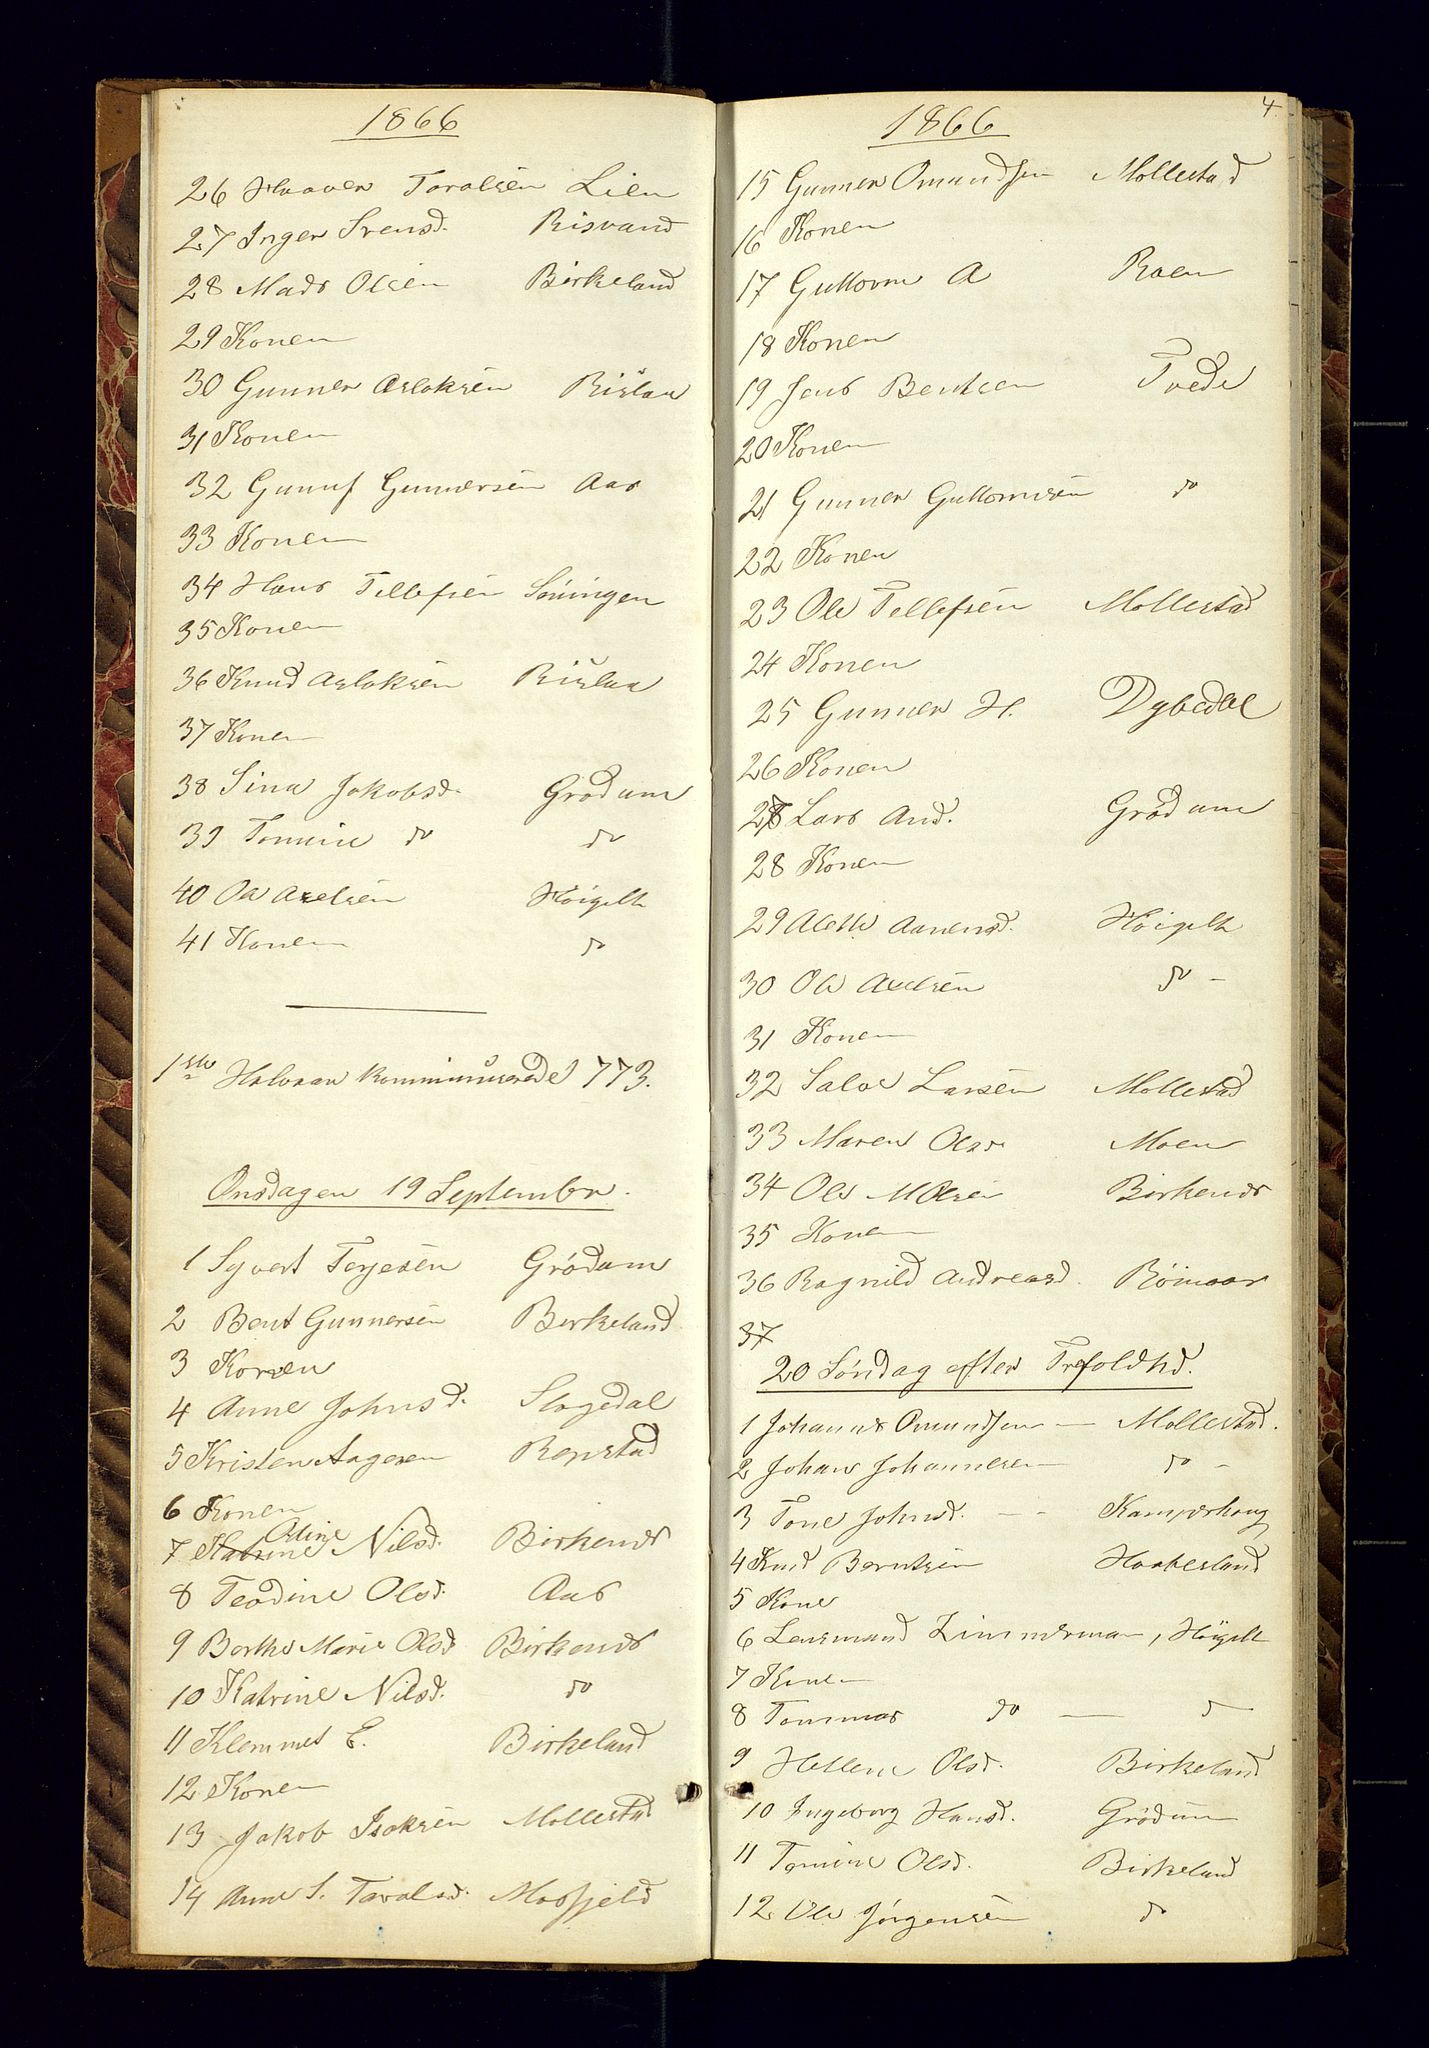 1866
26 Haaver Taralsen Lien
27 Inger Svensd. Risvand
28 Mads Olsen Birkeland
29 Konen
30 Gunner Aslaksen Rislaa
31 Konen
32 Gunuf Gunnersen Aas
33 Konen
34 Hans Tellefsen Søningen
35 Konen
36 Knud Aslaksen Rislaa
37 Konen
38 Sina Jakobsd. Grødum
39 Tomine do do
40 Ole Axelsen Høigilt
41 Konen do
1ste Halvaar kommunicerede 773.
Onsdagen 19 September.
1 Syvert Terjesen Grødum
2 Bent Gunnersen Birkeland
3 Konen
4 Anne Johnsd. Slogedal
5 Kristen Aagesen Repstad
6 Konen
Oline
7 Katrine Nilsd. Birkenes
8 Teodine Olsd. Aas
9 Berthe Marie Olsd Birkenes
10 Katrine Nilsd. do
11 Klemmet E. Birkeland
12 Konen
13 Jakob Isaksen Mollestad
14 Anne S. Taralsd. Mosfjeld
4
1866
15 Gunner Omundsen Mollestad
16 Konen
17 Guttorm A Roen
18 Konen
19 Jens Bentsen Tvede
20 Konen
21 Gunner Guttormsen do
22 Konen
23 Ole Tellefsen Mollestad
24 Konen
25 Gunner H. Dybedal
26 Konen
27 Lars And. Grødum
28 Konen
29 Alette Aanensd. Høigilt
30 Ole Axelsen do -
31 Konen
32 Salve Larsen Mollestad
33 Maren Olsd Moen
34 Ole M Olsen Birkenes
35 Konen
36 Ragnild Andreasd. Røinaas
37
20 Søndag efter Trefoldhd.
1 Johannes Omundsen — Mollestad.
2 Johan Johannesen do -
3 Tone Johnsd. - - Kamperhaug
4 Knud Berntsen Haabesland
5 Kone
6 Lensmand Zimmerman, Høigilt
7 Konen
8 Tommas do — do
9 Hellene Olsd. Birkeland
10 Ingeborg Hansd. Grødum
11 Tomine Olsd. Birkeland
12 Ole Jørgensen do